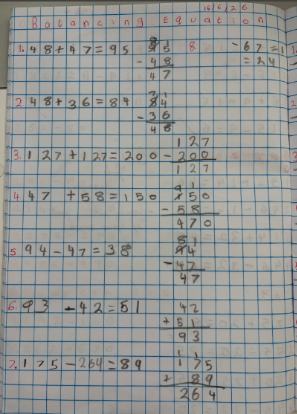 16/6/26
Balancing Equation
1. 48+47=95
95
- 48
47
8. -67=
=24
2. 48+36=84
84
- 36
48
3. 127+127=200
127
- 200
127
4. 47 +58=150
150
- 58
470
5. 94-47=38
94
- 47
47
6. 93 -42=51
42
+ 51
93
7. 175-264=89
175
+ 89
264